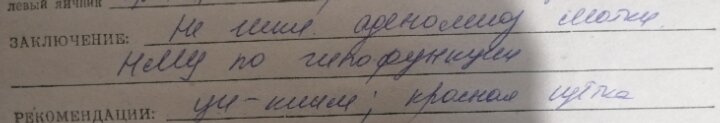 левый яичник
ЗАКЛЮЧЕНИЕ: Не искл. аденомиоз матки.
НМЦ по гипофункции
РЕКОМЕНДАЦИИ: ; красная щётка